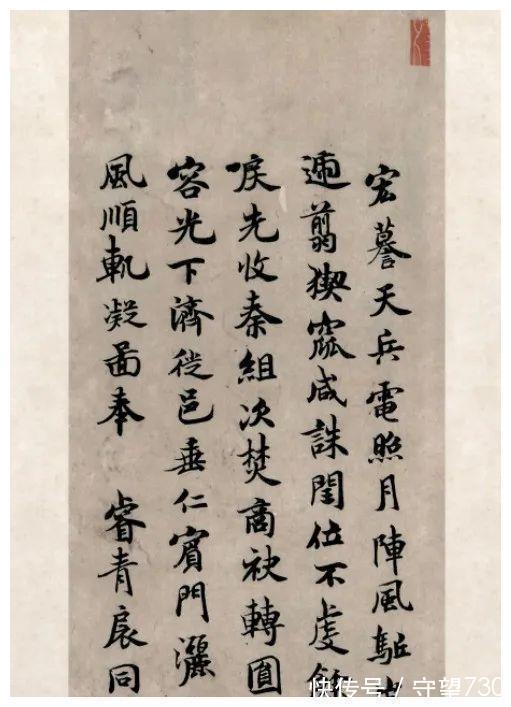 宏謩天兵電照月陣風駈
迺翦猰窳咸誅閏位不虔
唳先收秦組次焚商袂轉圓
容光下濟徙邑垂仁賓門灑
風順軌凝圖奉 睿青扆同
快传号 / 守望730